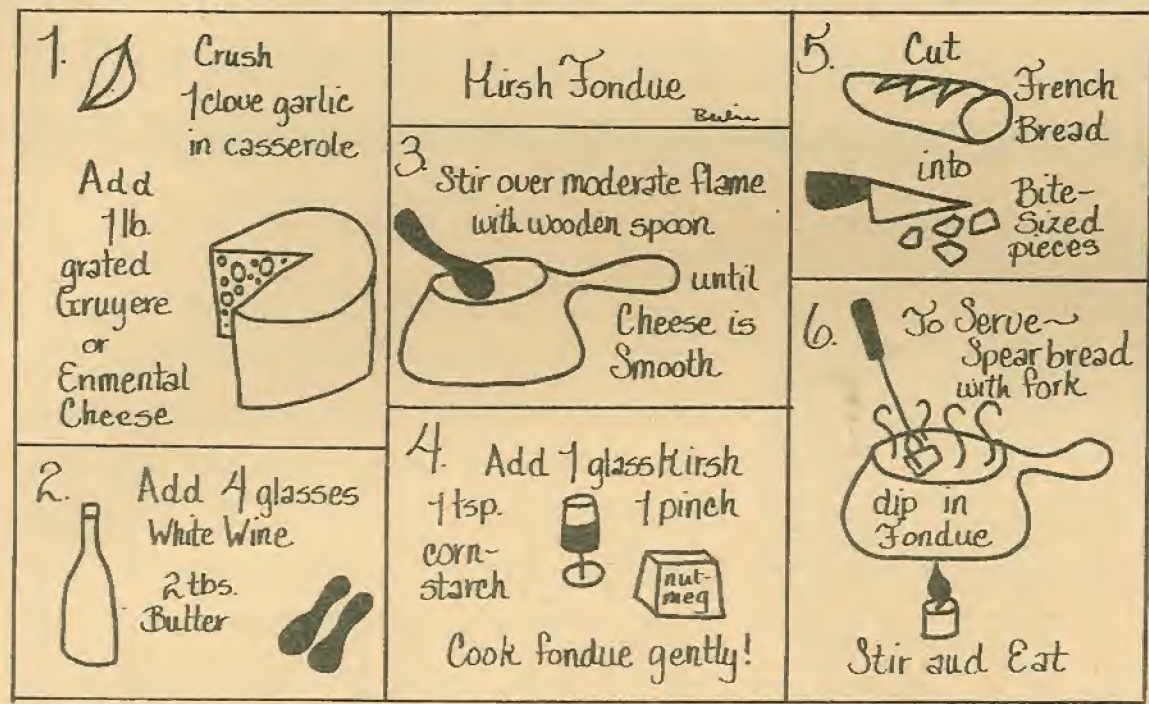 Kirsh Fondue
1.
Crush
1 clove garlic
in casserole
Add
1 lb.
grated
Gruyere
or
Enmental
Cheese
2.
Add 4 glasses
White Wine
2 tbs.
Butter
3.
Stir over moderate flame
with wooden spoon
until
Cheese is
Smooth
4.
Add 1 glass Kirsh
1 tsp.
corn-
starch
1 pinch
nut-
meg
Cook fondue gently!
5.
Cut
French
Bread
into
Bite-
Sized
pieces
6.
To Serve~
Spear bread
with fork
dip in
Fondue
Stir and Eat